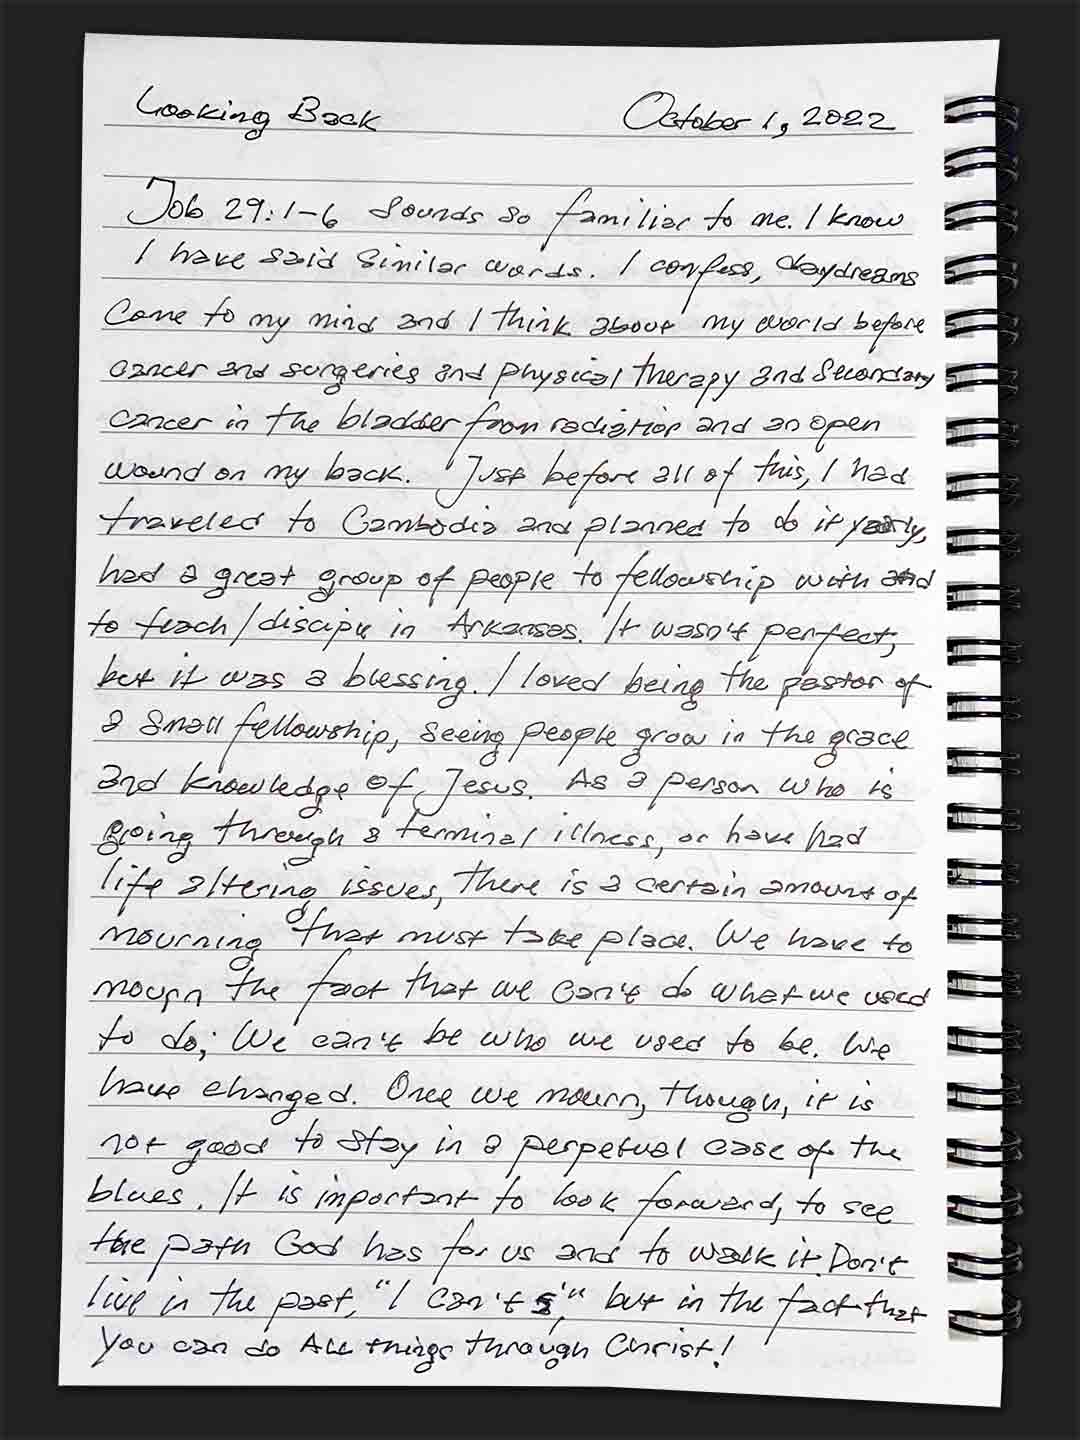 Looking Back October 1, 2022
Job 29:1-6 sounds so familiar to me. I know
I have said similar words. I confess, daydreams
come to my mind and I think about my world before
cancer and surgeries and physical therapy and secondary
cancer in the bladder from radiation and an open
wound on my back. Just before all of this, I had
traveled to Cambodia and planned to do it yearly,
had a great group of people to fellowship with and
to teach/disciple in Arkansas. It wasn't perfect,
but it was a blessing. I loved being the pastor of
a small fellowship, seeing people grow in the grace
and knowledge of Jesus. As a person who is
going through a terminal illness, or have had
life altering issues, there is a certain amount of
mourning that must take place. We have to
mourn the fact that we can't do what we used
to do; We can't be who we used to be. We
have changed. Once we mourn, though, it is
not good to stay in a perpetual case of the
blues. It is important to look forward, to see
the path God has for us and to walk it. Don't
live in the past, "I can't s," but in the fact that
you can do All things through Christ!